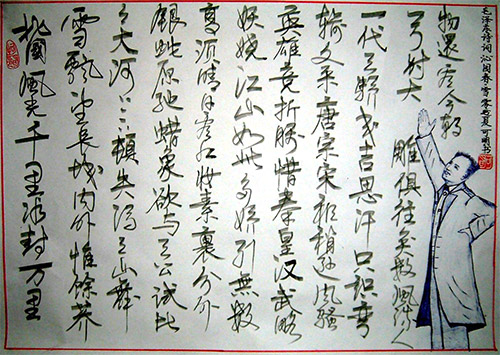 北國風光千里冰封万里
雪飘望长城内外惟餘莽
々大河上下頓失滔々山舞
銀蛇原驰蜡象欲与天公试比
高须晴日看红妆素裹分外
妖娆江山如此多娇引無数
英雄竞折腰惜秦皇汉武略
输文采唐宗宋祖稍逊风骚
一代天骄成吉思汗只识弯
弓射大雕俱往矣数风流人
物還看今朝
毛泽东诗词沁园春雪零七夏可明书